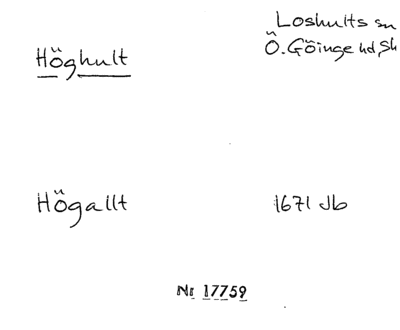 Höghult
Loshults sn
Ö. Göinge hd, Sk
Högallt
1671 Jb
Nr 17759